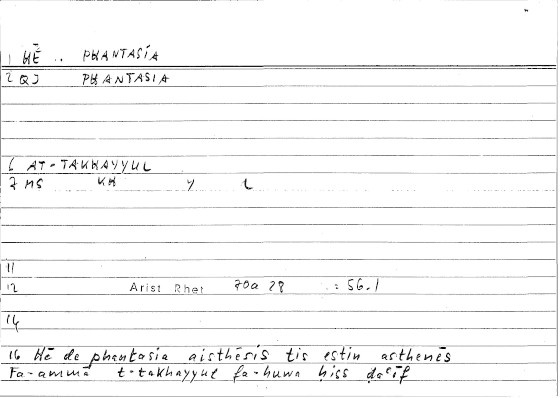 1 HĒ .. PHANTASÍA
2 QJ PHANTASIA
6 AT-TAKHAYYUL
7 MS KH Y L
11
12 Arist Rhet 70a 28 : 56.1
14
16 Hē de phantasia aisthēsis tis estin asthenēs
Fa-ammā t-takhayyul fa-huwa ḥiss ḍaʿīf